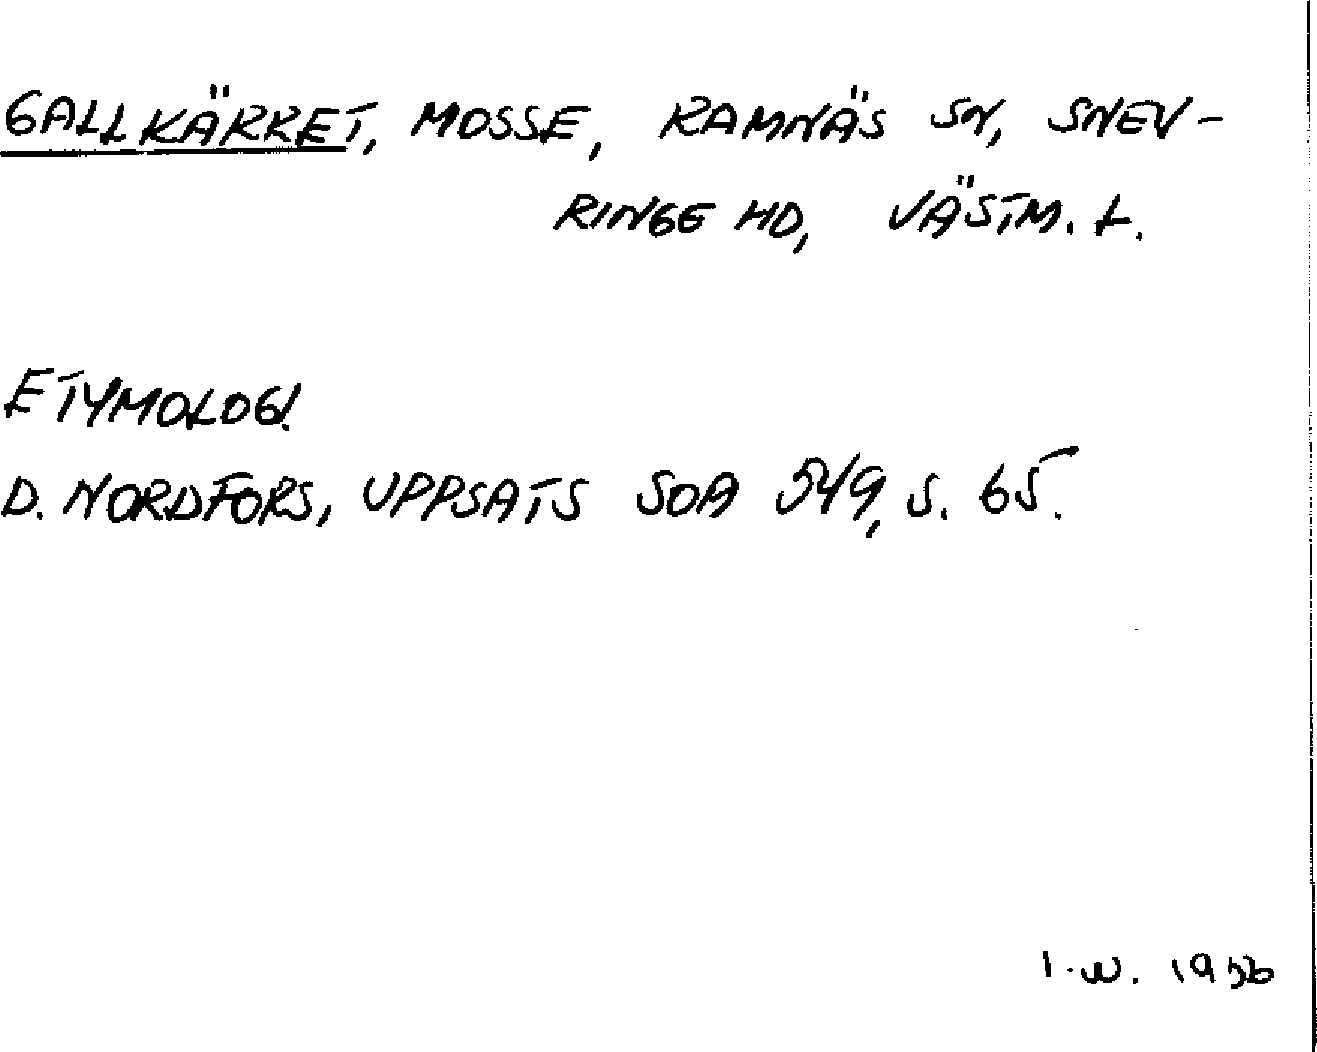 GALLKÄRRET, MOSSE, RAMNÄS SN, SNEV-
RINGE HD, VÄSTM. L.
ETYMOLOGI
D. NORDFORS, UPPSATS SOA 549, S. 65.
I.W. 1956